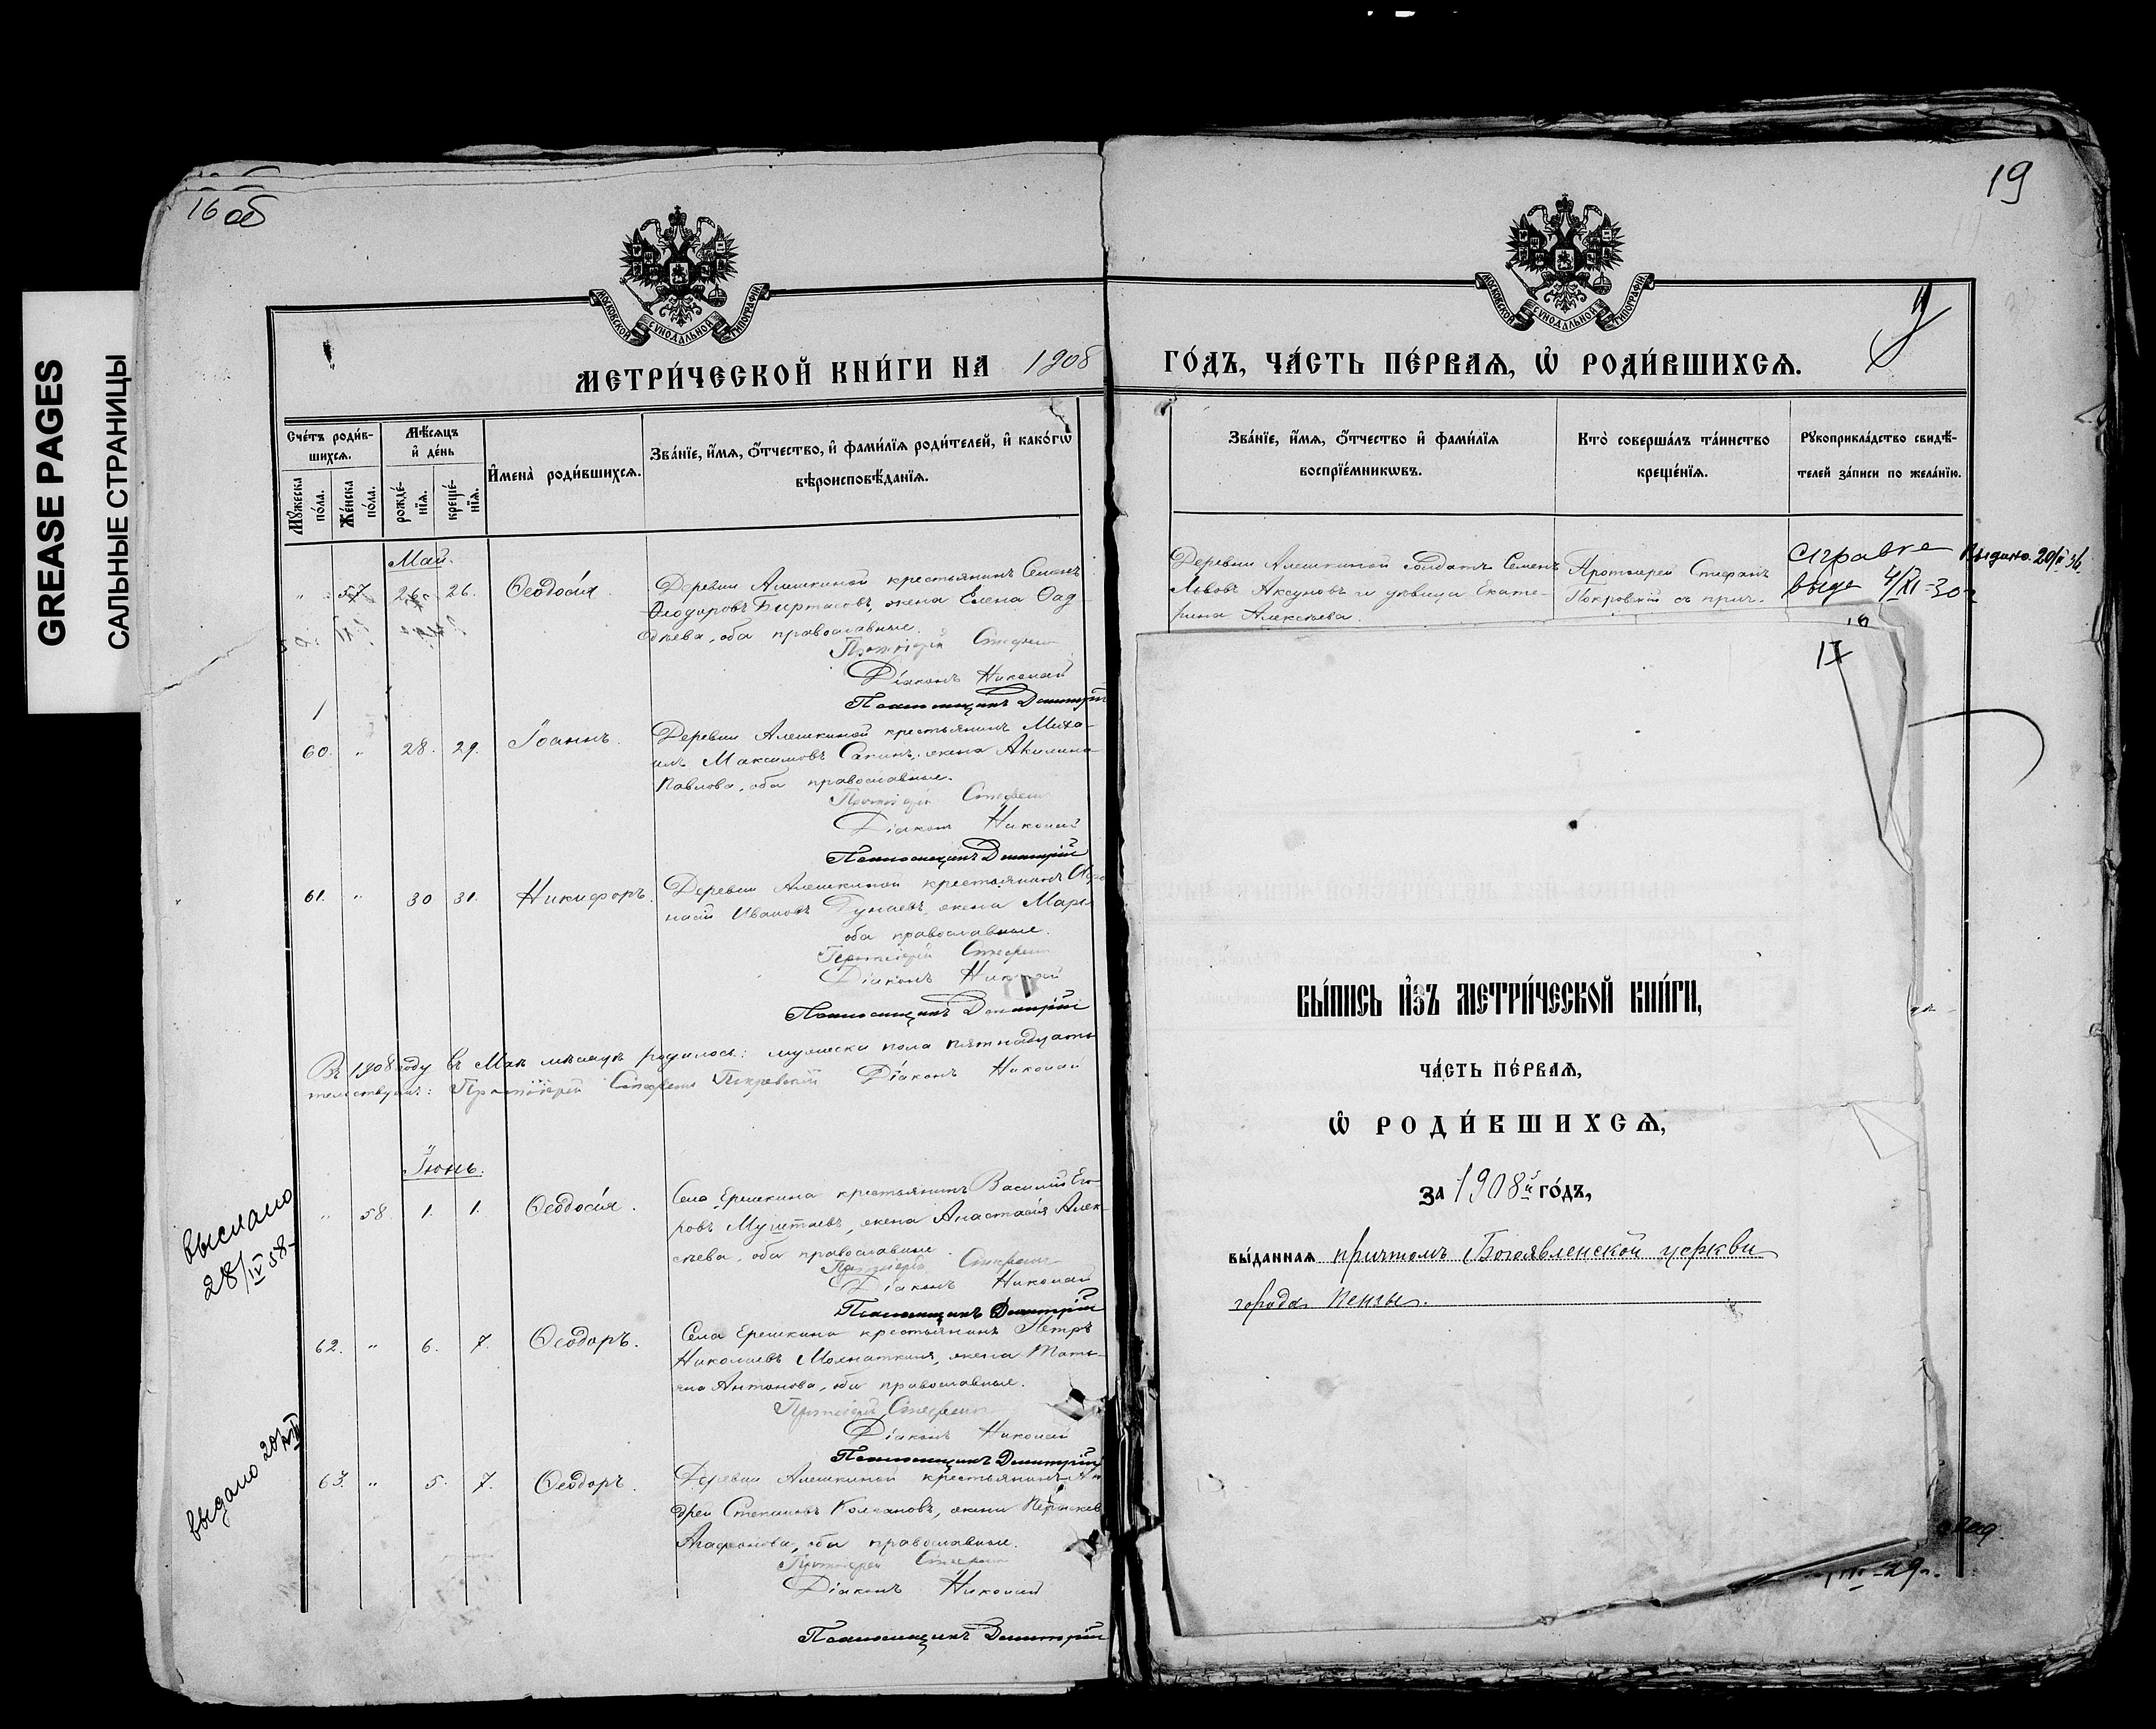 GREASE PAGES
САЛЬНЫЕ СТРАНИЦЫ
16 об
МОСКОВСКОЙ СѴНОДАЛЬНОЙ ТИПОГРАФІИ
МЕТРИ́ЧЕСКОЙ КНИ́ГИ НА 1908
Сче́тъ роди́в-
шихсѧ.
Мꙋжеска по́ла.
Же́нска по́ла.
Мѣ́сѧцъ
и҆ де́нь
рожде́-
нїѧ.
креще́-
нїѧ.
И҆мена̀ роди́вшихсѧ.
Зва́нїе, и҆́мѧ, ѻ҆́тчество, и҆ фами́лїѧ роди́телей, и҆ како́гѡ
вѣроисповѣ́данїѧ.
Май.
" 57 26. 26. Ѳеодосія
Деревни Алешкиной крестьянинъ Семенъ
Ѳеодоровъ, жена Елена Ѳад-
дѣева, оба православные.
Протоіерей Стефанъ
Діаконъ Николай
Псаломщикъ Димитрій
60. " 28. 29. Іоаннъ.
Деревни Алешкиной крестьянинъ Миха-
илъ Максимовъ Сапинъ, жена Акилина
Павлова, оба православные.
Протоіерей Стефанъ
Діаконъ Николай
Псаломщикъ Димитрій
61. " 30 31. Никифоръ.
Деревни Алешкиной крестьянинъ
Ивановъ Дунаевъ, жена
оба православные.
Протоіерей Стефанъ
Діаконъ Николай
Псаломщикъ Димитрій
Въ 1908 году въ Маѣ мѣсяцѣ родилось: мужеска пола пятнадцать
Протоіерей Стефанъ Покровскій Діаконъ Николай
Іюнь.
высслано
28/IV 58
" 58 1. 1. Ѳеодосія.
Села Ершкина крестьянинъ Василій Его-
ровъ Муштаевъ, жена Анастасія Алек-
сѣева, оба православные.
Протоіерей Стефанъ
Діаконъ Николай
Псаломщикъ Димитрій
62. " 6. 7. Ѳеодоръ.
Села Ершкина крестьянинъ Петръ
Николаевъ, жена Татья-
на Антонова, оба православные.
Протоіерей Стефанъ
Діаконъ Николай
Псаломщикъ Димитрій
выдано
63. " 5. 7. Ѳеодоръ.
Деревни Алешкиной крестьянинъ Ан
дрей Степановъ Колгановъ, жена
Агафонова, оба православные.
Протоіерей Стефанъ
Діаконъ Николай
Псаломщикъ Димитрій
19
МОСКОВСКОЙ СѴНОДАЛЬНОЙ ТИПОГРАФІИ
ГО́ДЪ, ЧА́СТЬ ПЕ́РВАѦ, Ѽ РОДИ́ВШИХСѦ.
Зва́нїе, и҆́мѧ, ѻ҆́тчество и҆ фами́лїѧ
воспрїе́мникѡвъ.
Кто̀ соверша́лъ та́инство
креще́нїѧ.
Рꙋкоприкла́дство свидѣ́-
телей за́писи по жела́нїю.
Деревни Алешкиной солдатъ Семенъ
Львовъ Аксуновъ и дѣвица Екате-
рина Алексѣева.
Протоіерей Стефанъ
Покровскій съ прич.
Справка
выд 4/XI-30
Выдано 20/
IX
ВЫ́ПИСЬ И҆ЗЪ МЕТРИ́ЧЕСКОЙ КНИ́ГИ,
ЧА́СТЬ ПЕ́РВАѦ,
Ѽ РОДИ́ВШИХСѦ,
ЗА 1908й ГО́ДЪ,
ВЫ́ДАННАѦ причтомъ Богоявленской церкви
города Пензы.
-29